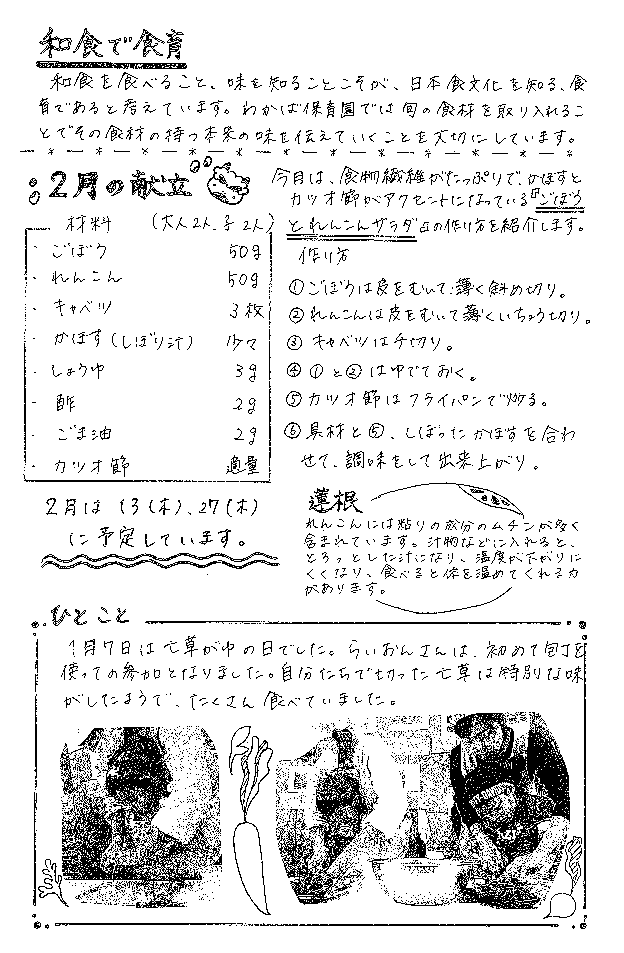 和食で食育
和食を食べること、味を知ることこそが、日本食文化を知る、食
育であると考えています。わかば保育園では旬の食材を取り入れるこ
とでその食材の持つ本来の味を伝えていくことを大切にしています。
2月の献立
今月は、食物繊維がたっぷりで、かぼすと
カツオ節がアクセントになっている『ごぼう
とれんこんサラダ』の作り方を紹介します。
材料 (大人2人、子2人)
・ごぼう 50g
・れんこん 50g
・キャベツ 3枚
・かぼす(しぼり汁) 少々
・しょうゆ 3g
・酢 2g
・ごま油 2g
・カツオ節 適量
2月は 13(木)、27(木)
に予定しています。
作り方
①ごぼうは皮をむいて薄く斜め切り。
②れんこんは皮をむいて薄くいちょう切り。
③キャベツは千切り。
④①と②はゆでておく。
⑤カツオ節はフライパンで炒る。
⑥具材と⑤、しぼったかぼすを合わ
せて、調味をして出来上がり。
蓮根
れんこんには粘りの成分のムチンが多く
含まれています。汁物などに入れると、
とろっとした汁になり、温度が下がりに
くくなり、食べると体を温めてくれる力
があります。
ひとこと
1月7日は七草がゆの日でした。らいおんさんは、初めて包丁を
使っての参加となりました。自分たちで切った七草は特別な味
がしたようで、たくさん食べていました。